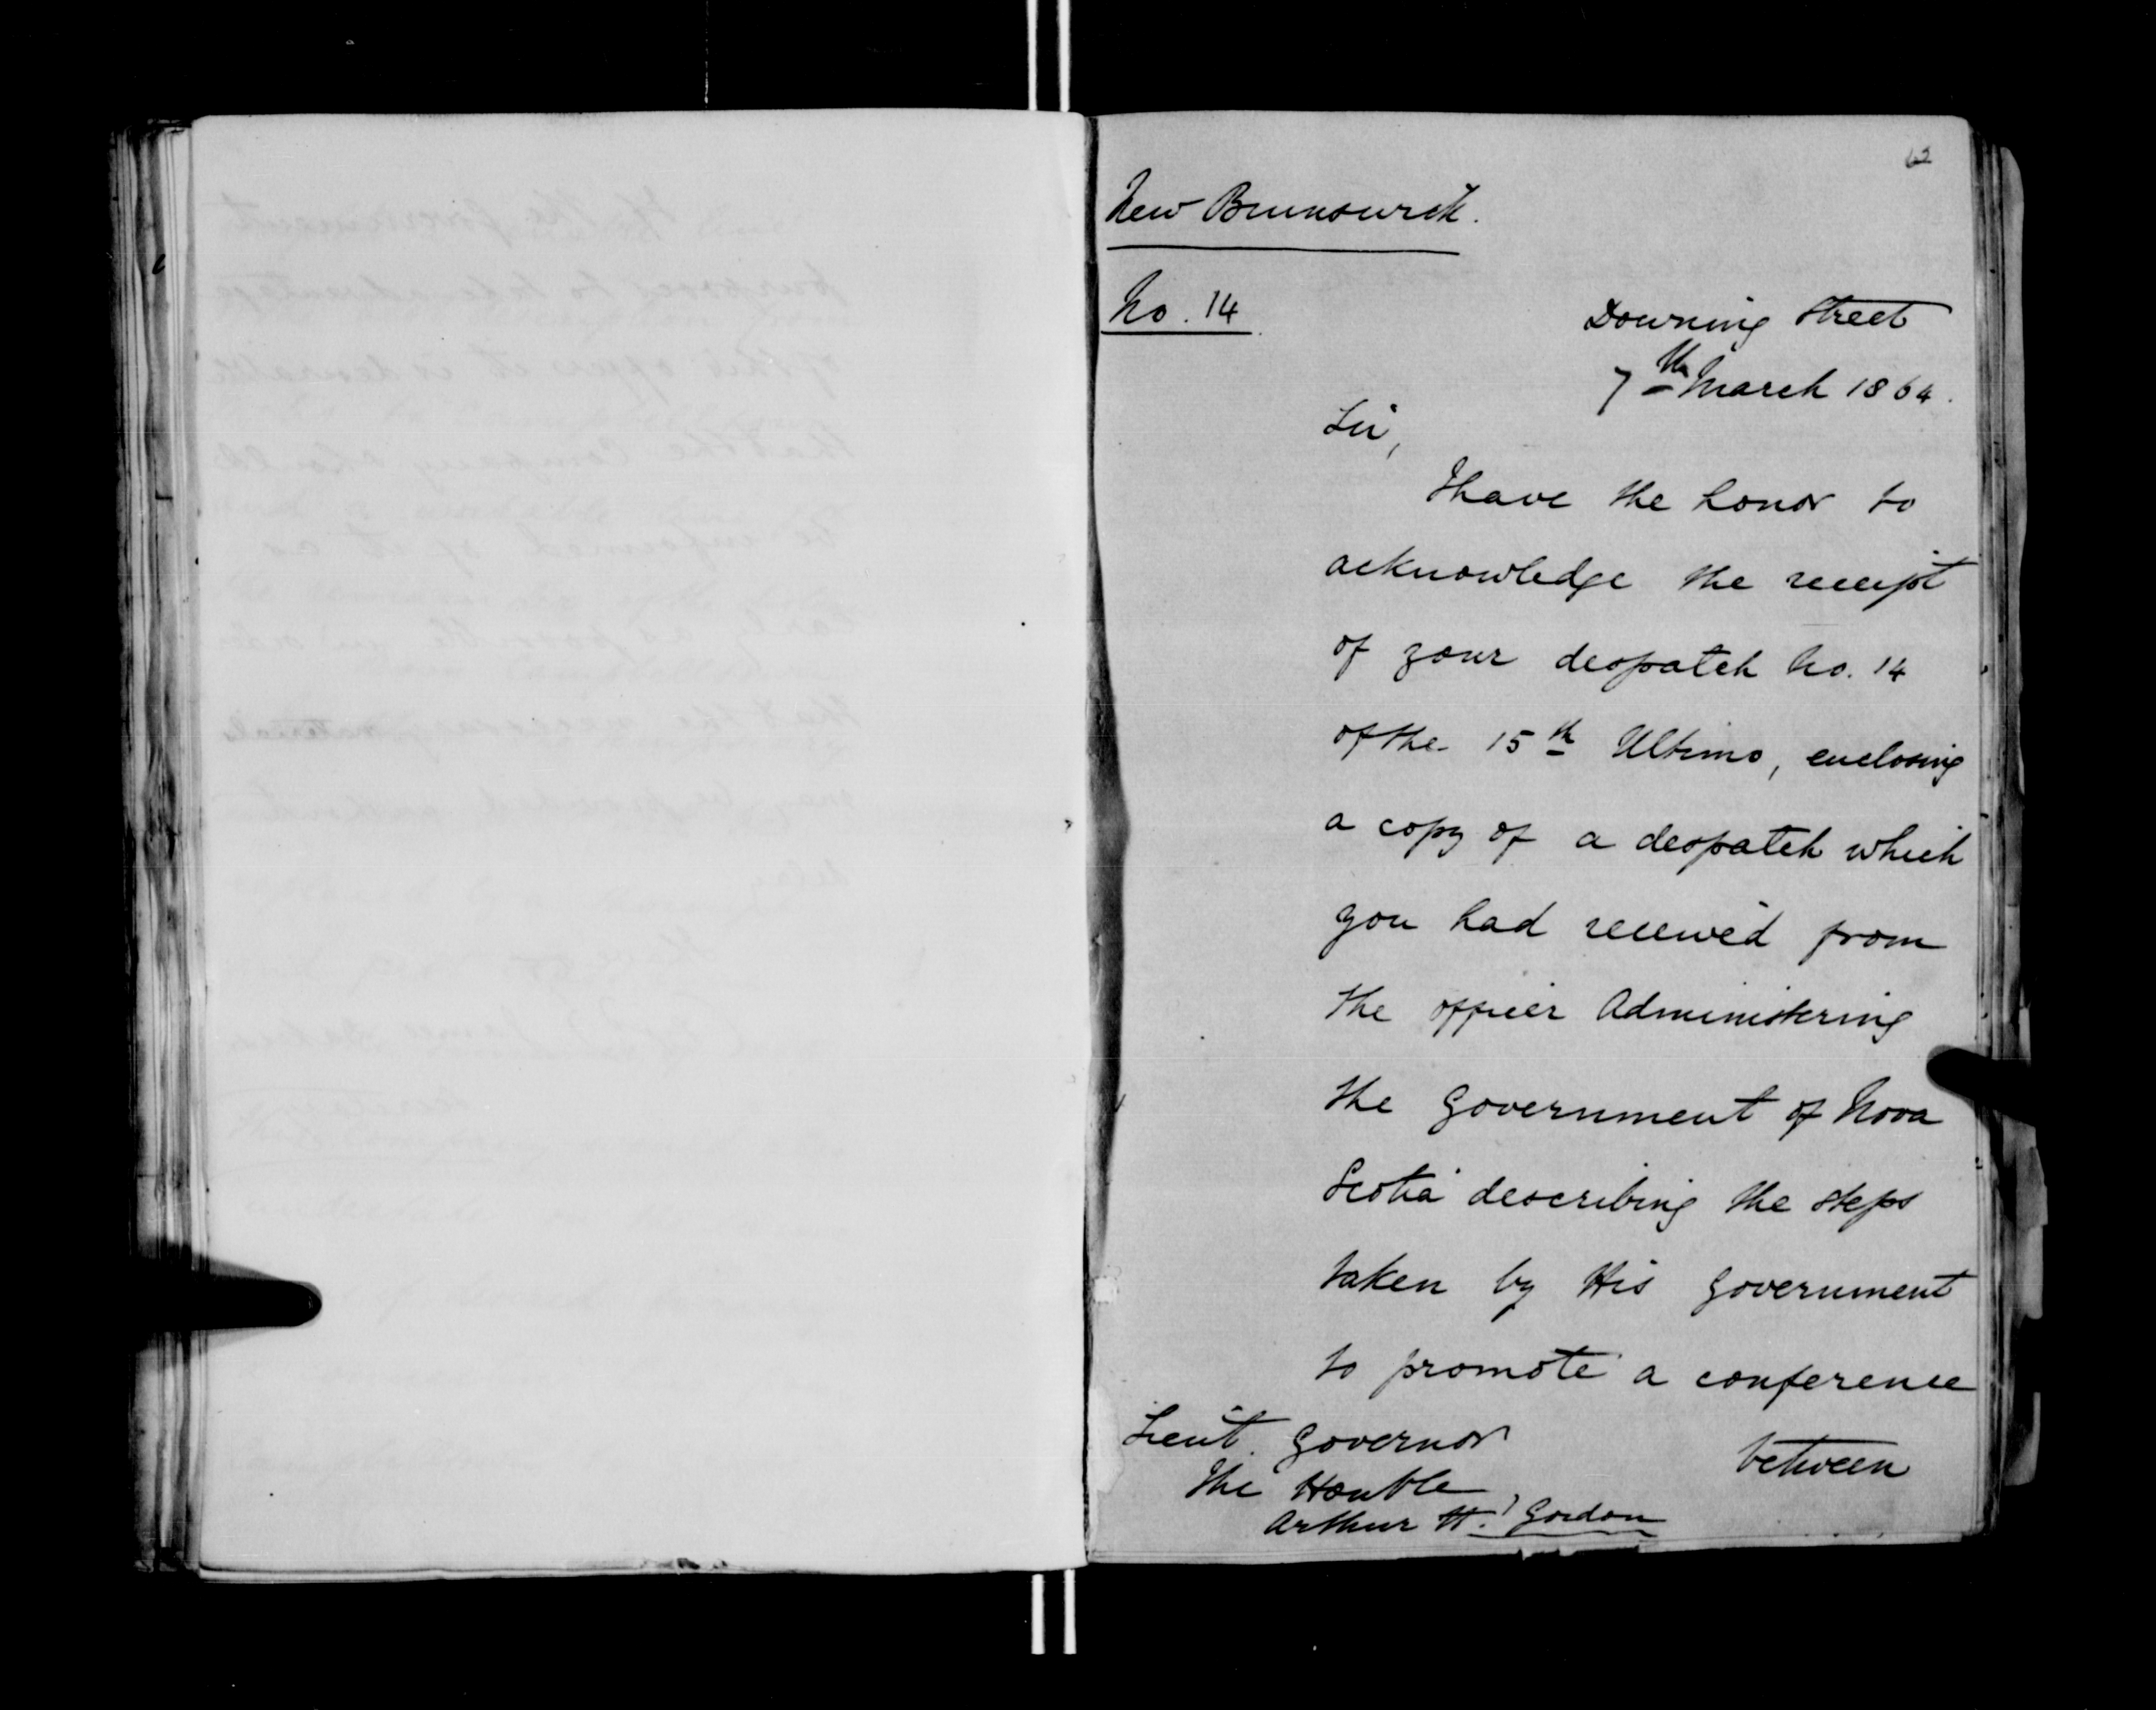 62
New Brunswick.
No. 14
Downing Street
7th March 1864.
Sir,
I have the honor to
acknowledge the receipt
of your despatch No. 14
of the 15th Ultimo, enclosing
a copy of a despatch which
you had received from
the officer Administering
the Government of Nova
Scotia describing the steps
taken by His Government
to promote a conference
between
Lieut. Governor
The Honble
Arthur H. Gordon